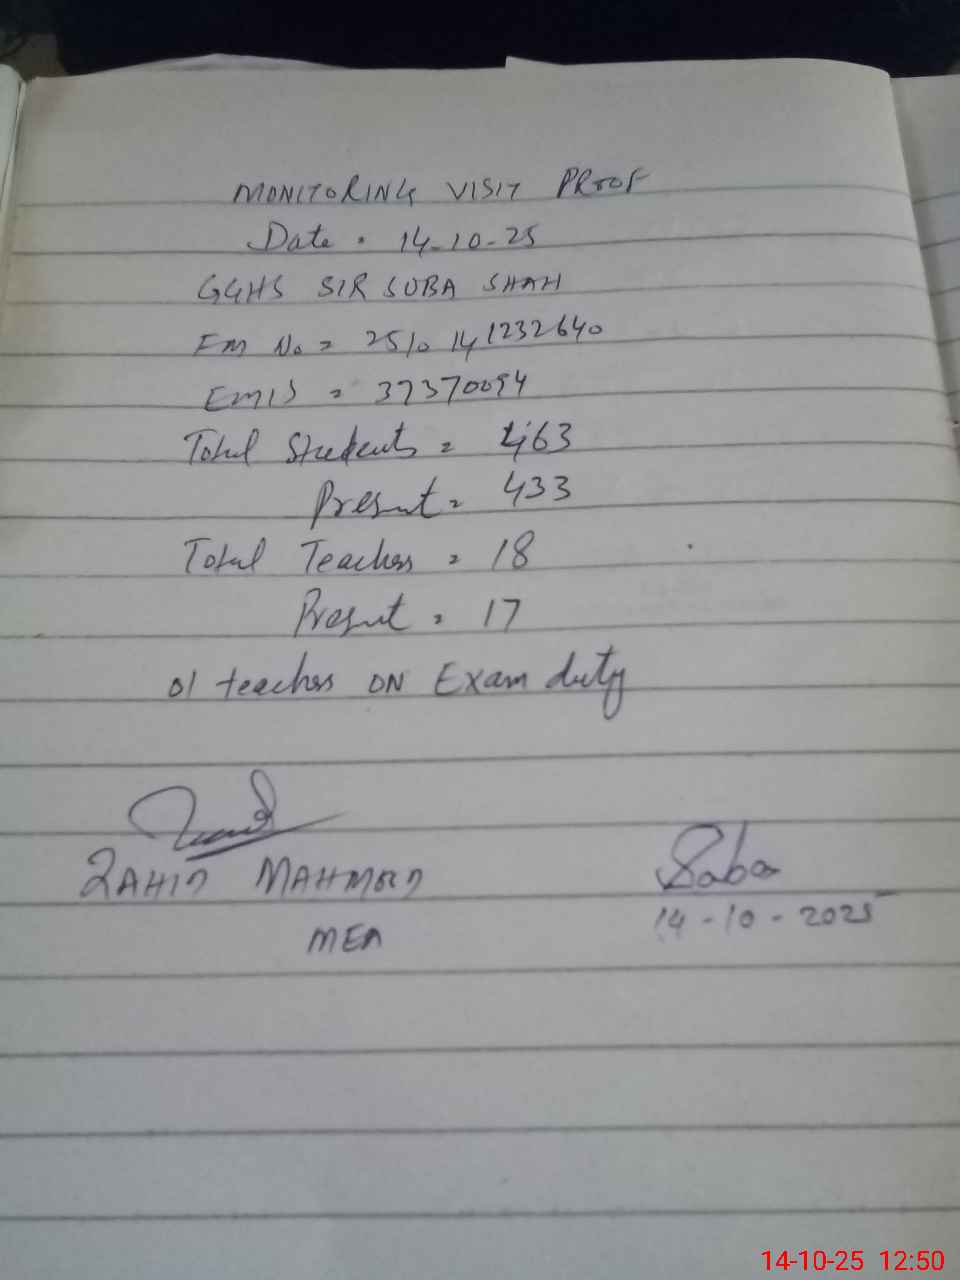 MONITORING VISIT PROOF
Date. 14-10-25
GGHS SIR SUBA SHAH
EM No = 2510 141232640
EMIS = 37370094
Total Students = 463
Present = 433
Total Teachers = 18
Present = 17
01 teachers ON Exam duty
ZAHID MAHMOOD
Saba
MEA
14-10-2025
14-10-25 12:50